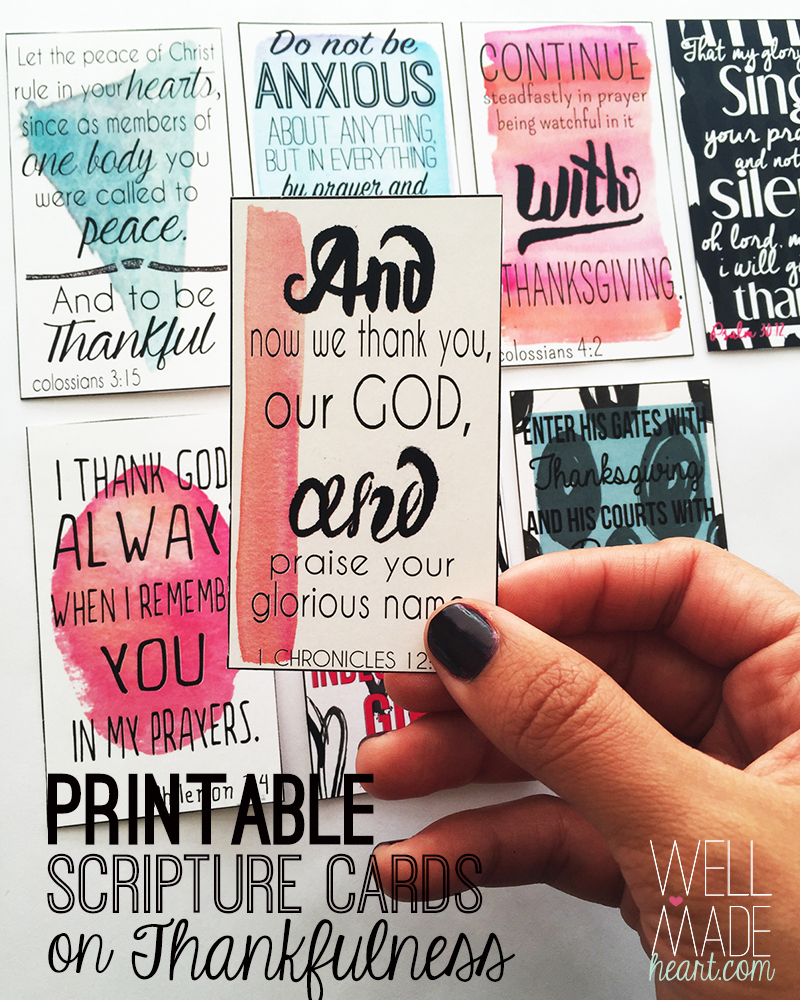 Let the peace of Christ
rule in your hearts,
since as members of
one body you
were called to
peace.
And to be
Thankful
colossians 3:15
Do not be
ANXIOUS
ABOUT ANYTHING,
BUT IN EVERYTHING
by prayer and
CONTINUE
steadfastly in prayer
being watchful in it
with
THANKSGIVING.
colossians 4:2
That my glory
Sing
your pra
and not
silen
oh lord, m
i will g
than
Psalm 30:12
And
now we thank you,
our GOD,
and
praise your
glorious name
1 CHRONICLES 12
I THANK GOD
ALWAY
WHEN I REMEMB
YOU
IN MY PRAYERS.
hilemon 1:4
ENTER HIS GATES WITH
Thanksgiving
AND HIS COURTS WITH
PRINTABLE
SCRIPTURE CARDS
on Thankfulness
WELL
MADE
heart.com